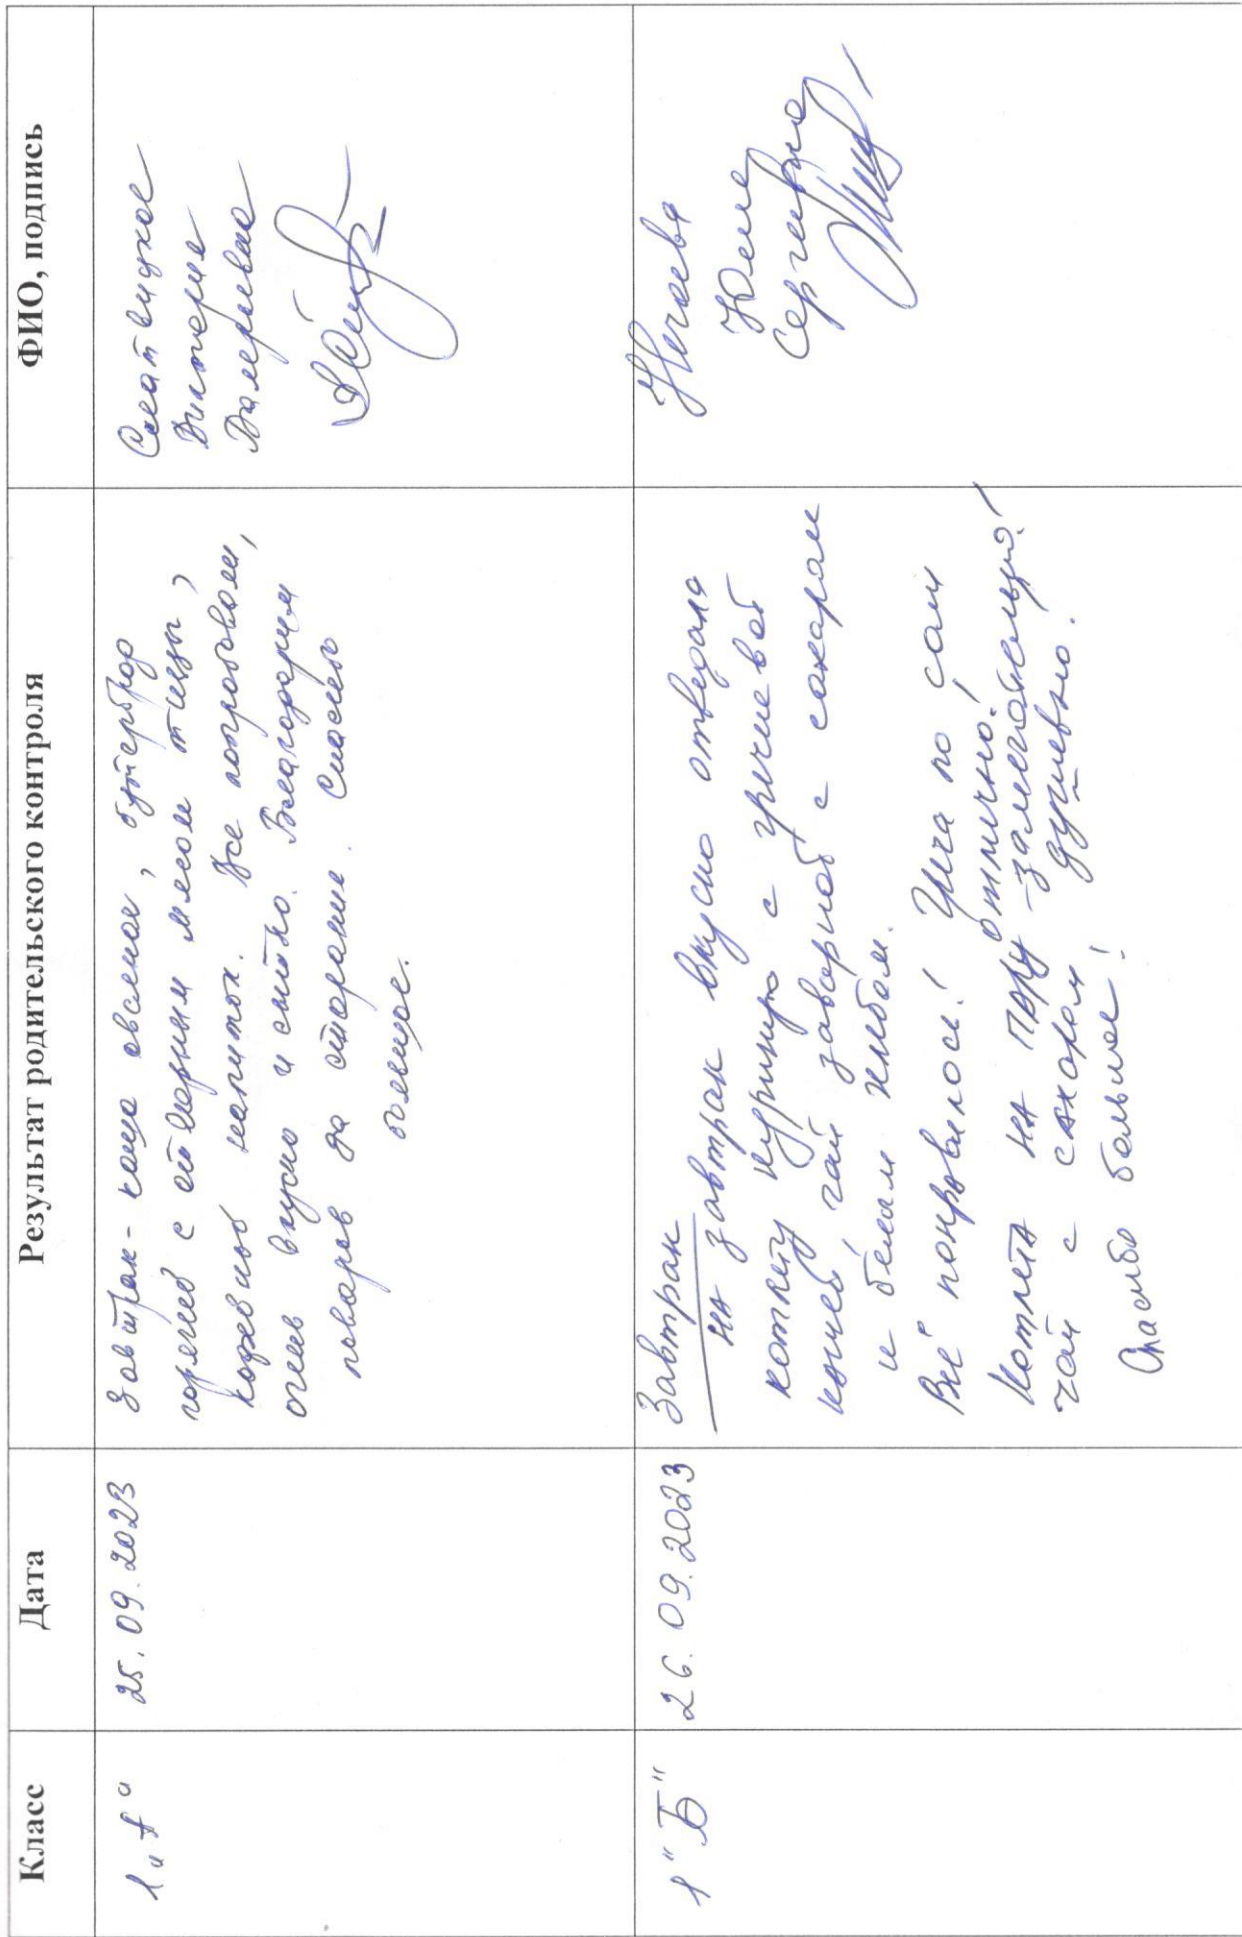 Класс Дата Результат родительского контроля ФИО, подпись
1 „А“ 25.09.2023
Завтрак - каша овсяная, бутерброд
горячей с отварным мясом птицы,
кофейный напиток. Все попробовали,
очень вкусно и сытно. Благодарим
поваров за старание. Спасибо
большое.
Виктория
Валерьевна
1 "Б" 26.09.2023
Завтрак
на завтрак вкусно отведала
котлету куриную с гречневой
кашей чай заварной с сахаром
и белым хлебом.
Всё понравилось! Греча по сам
отлично!
Котлета на пару - замечательно!
чай с сахаром душевно!
Спасибо большое!
Нечаева
Юлия
Сергеевна